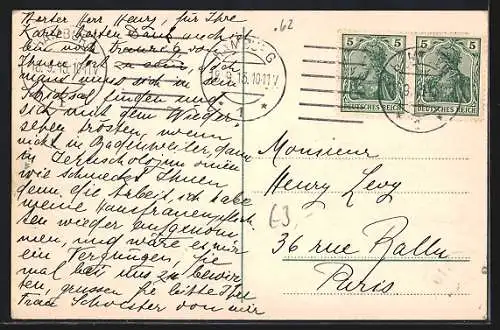 Werter Herr Henry, für Ihre
Karte besten Dank auch ich
bin noch traurig von
Ihnen zu sein, doch
man muss sich in sein
Schicksal finden und
sich mit dem Wieder-
sehen trösten, wenn
nicht in Badenweiler, dann
in
wie schmeckt Ihnen
denn die Arbeit, ich habe
meine Hausfrauenpflich-
ten wieder aufgenom-
men, und wäre es mir
ein Vergnügen, Sie
mal bei uns zu bewir-
ten, grüssen Sie bitte Ihre
Frau Schwester von mir
.62
18.9.13.10-11V
1
5
5
DEUTSCHES REICH
DEUTSCHES REICH
Monsieur
Henry Levy
£3.-
36 rue Ballu
Paris